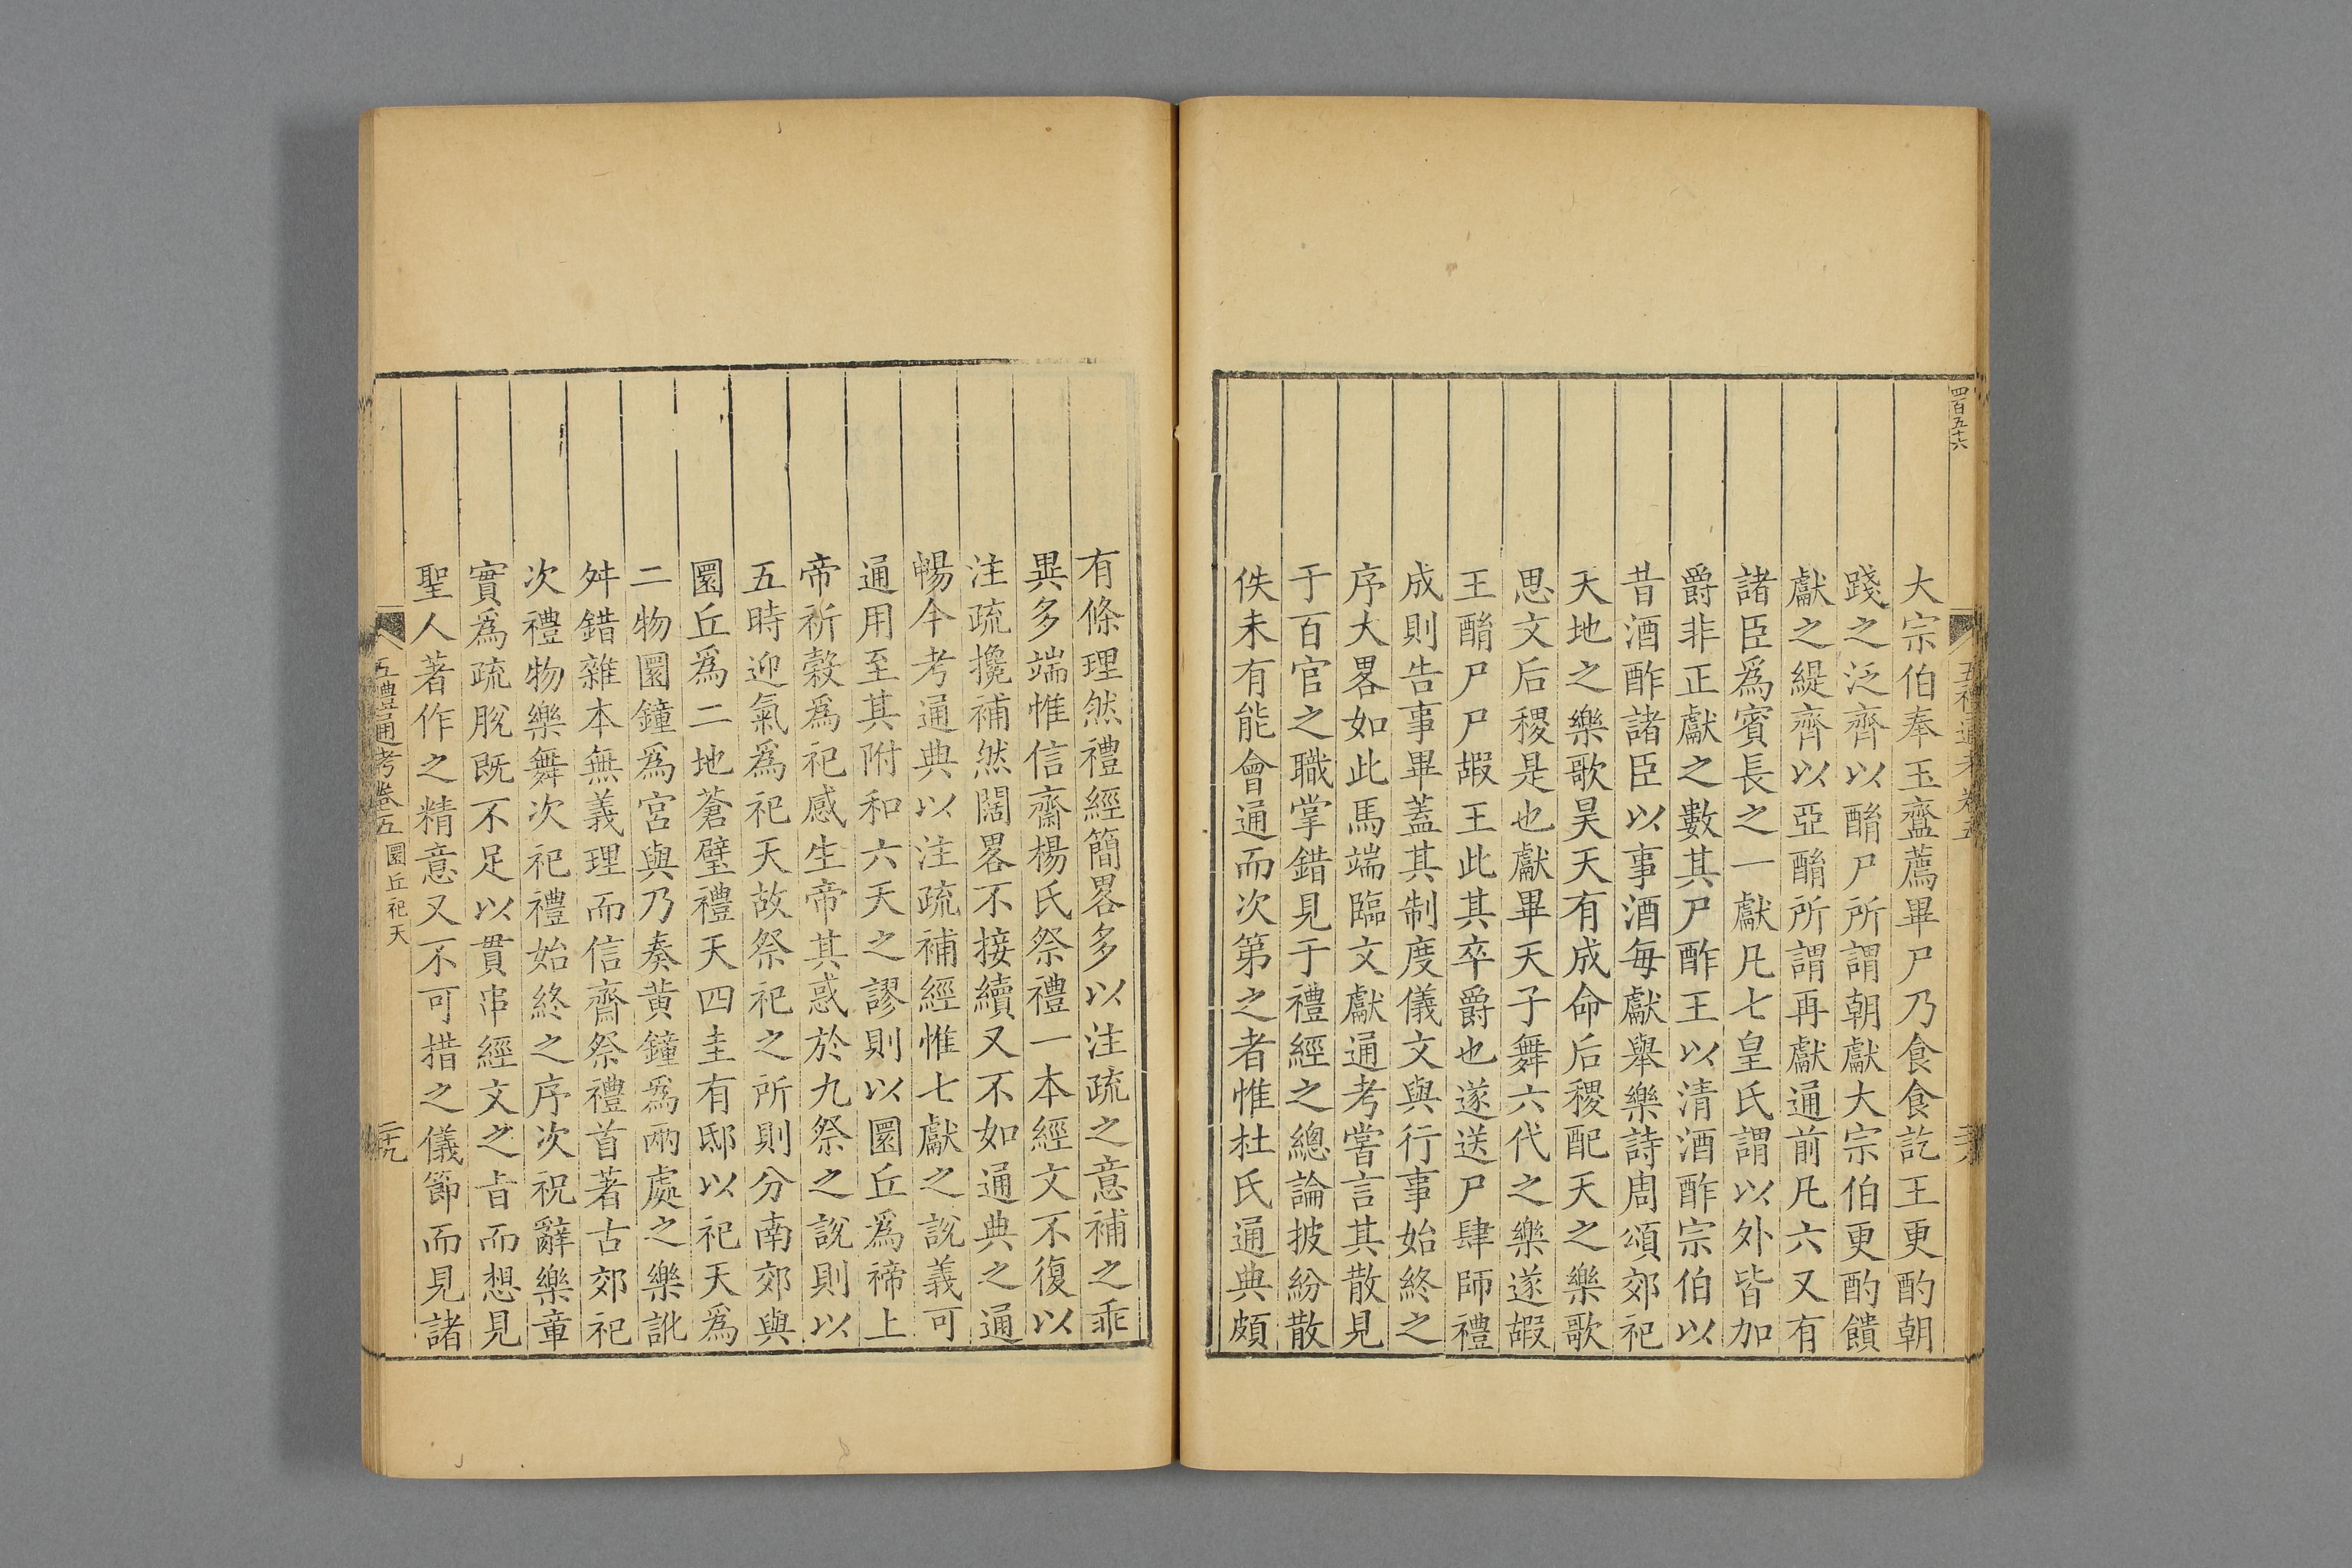 四百五十六
大宗伯奉玉齍薦畢尸乃食食訖王更酌朝
踐之泛齊以酳尸所謂朝獻大宗伯更酌饋
獻之緹齊以亞酳所謂再獻通前凡六又有
諸臣爲賓長之一獻凡七皇氏謂以外皆加
爵非正獻之數其尸酢王以清酒酢宗伯以
昔酒酢諸臣以事酒每獻舉樂詩周頌郊祀
天地之樂歌昊天有成命后稷配天之樂歌
思文后稷是也獻畢天子舞六代之樂遂嘏
王酳尸尸嘏王此其卒爵也遂送尸肆師禮
成則告事畢蓋其制度儀文與行事始終之
序大畧如此馬端臨文獻通考嘗言其散見
于百官之職掌錯見于禮經之總論披紛散
佚未有能會通而次第之者惟杜氏通典頗
有條理然禮經簡畧多以注疏之意補之乖
異多端惟信齋楊氏祭禮一本經文不復以
注疏攙補然闊畧不接續又不如通典之通
暢今考通典以注疏補經惟七獻之說義可
通用至其附和六天之謬則以圜丘爲禘上
帝祈穀爲祀感生帝其惑於九祭之說則以
五時迎氣爲祀天故祭祀之所則分南郊與
圜丘爲二地蒼璧禮天四圭有邸以祀天爲
二物圜鐘爲宮與乃奏黃鐘爲兩處之樂訛
舛錯雜本無義理而信齋祭禮首著古郊祀
次禮物樂舞次祀禮始終之序次祝辭樂章
實爲疏脫既不足以貫串經文之㫖而想見
聖人著作之精意又不可措之儀節而見諸
五禮通考卷五 圜丘祀天